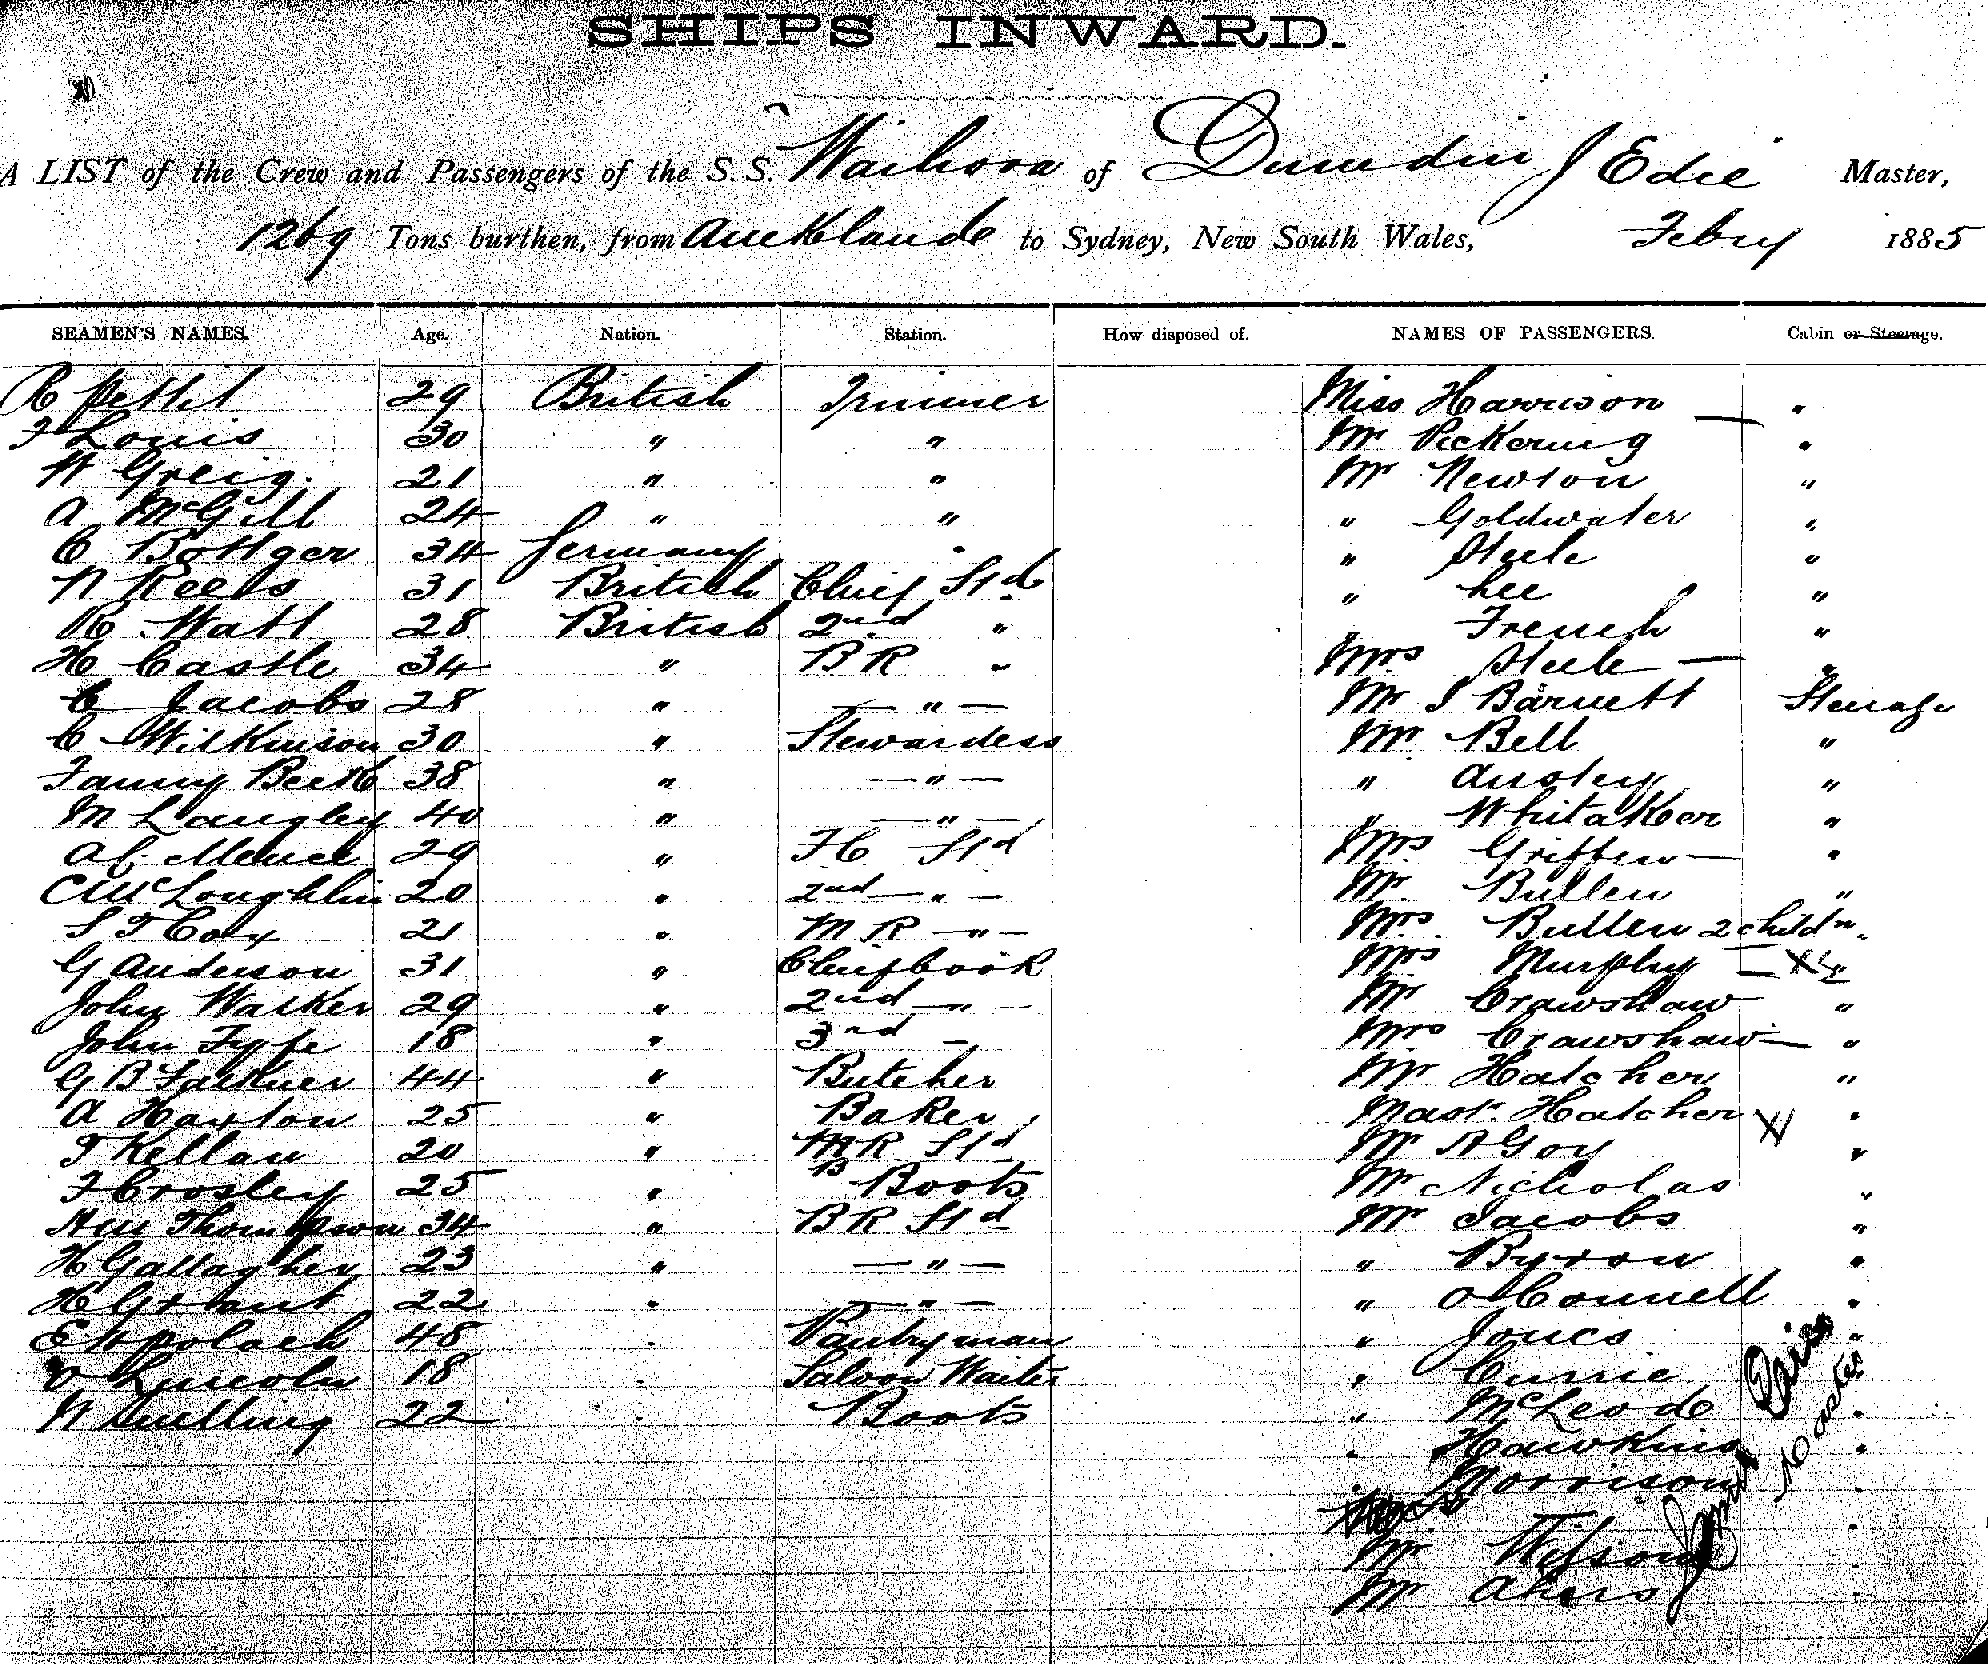 SHIPS INWARD.
A LIST of the Crew and Passengers of the S.S. Waihora of Dunedin J Edie Master,
1269 Tons burthen, from Auckland to Sydney, New South Wales, Febry 1885
SEAMEN'S NAMES. Age. Nation. Station. How disposed of. NAMES OF PASSENGERS. Cabin or Steerage.
R Pettit 29 British Trimmer Miss Harrison — "
F Louis 30 " " Mr Pickering "
W Greig. 21 " " Mr Newton "
A McGill 24 " " " Goldwater "
C Bottger 34 Germany " " Steele "
N Reeds 31 British Chief Std " Lee "
R Watt 28 British 2nd " " French "
H Castle 34 " B R " Mrs Steele — "
C Jacobs 28 " — " — Mr S Barnett Steerage
C Wilkinson 30 " Stewardess Mr Bell "
Fanny Beek 38 " — " — " Anstey "
M Langley 40 " — " — " Whitaker "
29 " F C Std Mrs Griffen — "
C McLoughlin 20 " 2nd — " — Mr. Bullen "
S F Cox 21 " M R — " — Mrs. Bullen 2 childn "
G Anderson 31 " Chief Cook Mrs Murphy — X "
John Walker 29 " 2nd — " — Mr Crawshaw "
John Fyfe 18 " 3rd — " Mrs Crawshaw — "
G B Falkner 44 " Butcher Mr Hatcher "
A Haxton 25 " Baker Mast. Hatcher X "
T Kellaw 20 " M R Std Mr A Goy "
F Crosley 25 " B Boots Mr Nicholas "
Thompson 34 " B R Std Mr Jacobs "
H Gallagher 23 " — " — " Byron "
H Grant 22 " — " — " O'Connell "
E Polack 48 " Pantryman " Jones "
Lincoln 18 " Saloon Waiter " Currie "
W Snelling 22 " Boots " McLeod "
" Hawkins "
" Morrison "
Mr Wilson "
Mr Akers "
James Edie
Master